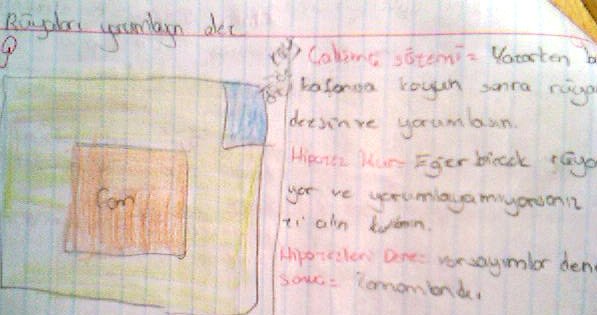 Rüyaları yorumlayn alet
Cam
Çalışma sistemi = Yatarken b
kafanıza koyun sonra rüya
dersin ve yorumlasın.
Hipotez Kur = Eğer bireek rüya
yor ve yorumlayamıyorsanız
alın
Hipotezleri Dene = varsayımlar dene
Sonuç = Tamamlandı.